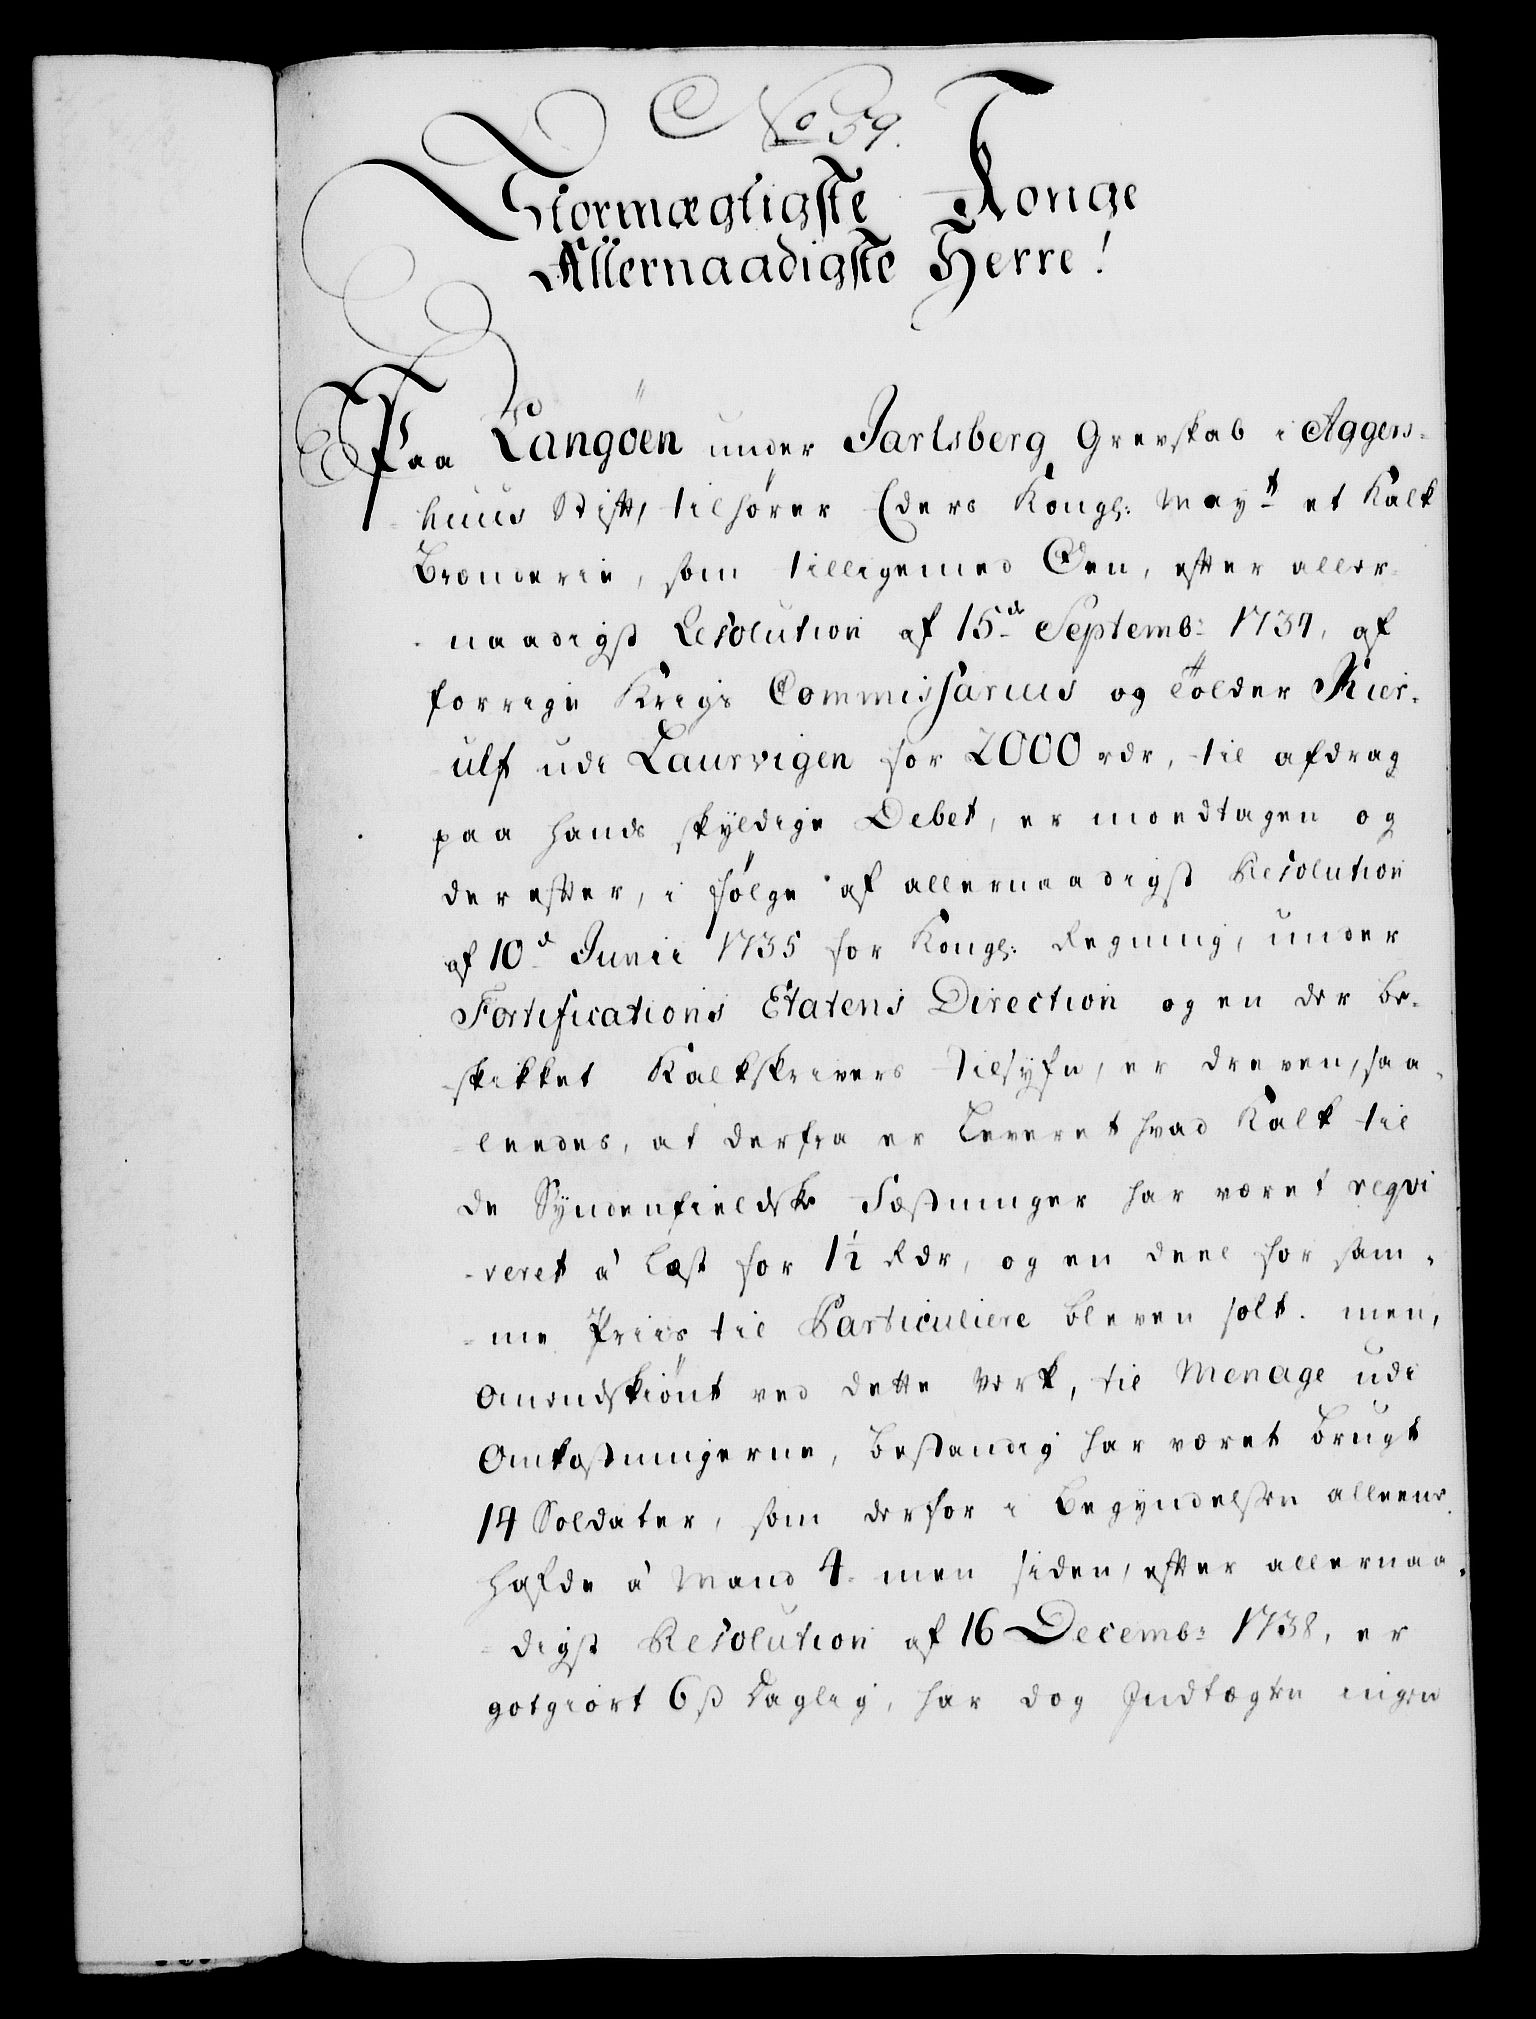 No 59.
Stormægtigste Konge
Allernaadigste Herre!
Paa Langöen under Jarlsberg Grevskab i Aggers-
huus Stift, tilhører Eders Kongl: Mayt et Kalk
Brænderie, som tilligemed Øen, efter aller-
naadigst Resolution af 15de Septemb: 1734, af
forrige Krigs Commissarius og Tolder Kier-
ulf udi Laurvigen for 2000 rdr, til afdrag
paa hands skyldige Debet, er modtagen og
derefter, i følge af allernaadigst Resolution
af 10d Junii 1735 for Kongl: Regning, under
Fortifications Etatens Direction og en der be-
skikket Kalkskrivers tilsyn, er dreven, saa-
leedes, at derfra er Leveret hvad Kalk til
de Syndenfieldske Fæstninger har været reqvi
-reret á Læst for 1½ Rdr, og en deel for sam-
me Priis til Particuliere bleven solt. men,
Omendskiönt ved dette Verk, til Menage udi
Omkostningerne, bestandig har været brugt
14 Soldater, som derfor i Begyndelsen alleene
hafde á Mand 4. men siden, efter allernaa-
digst Resolution af 16 Decemb: 1738, er
gotgiort 6 ß Daglig, har dog Indtægten ingen